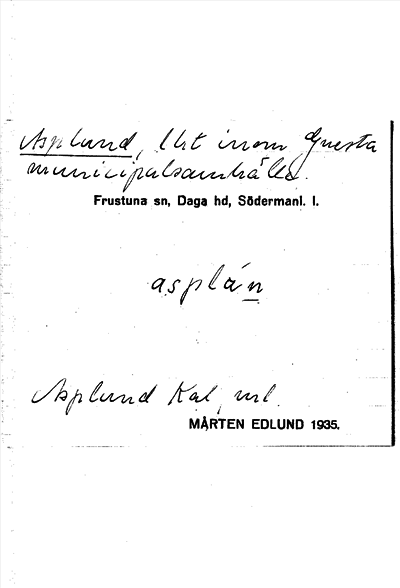 Asplund, lht inom Gnesta
municipalsamhälle.
Frustuna sn, Daga hd, Södermanl. l.
asplán
Asplund Kal, ml.
MÅRTEN EDLUND 1935.